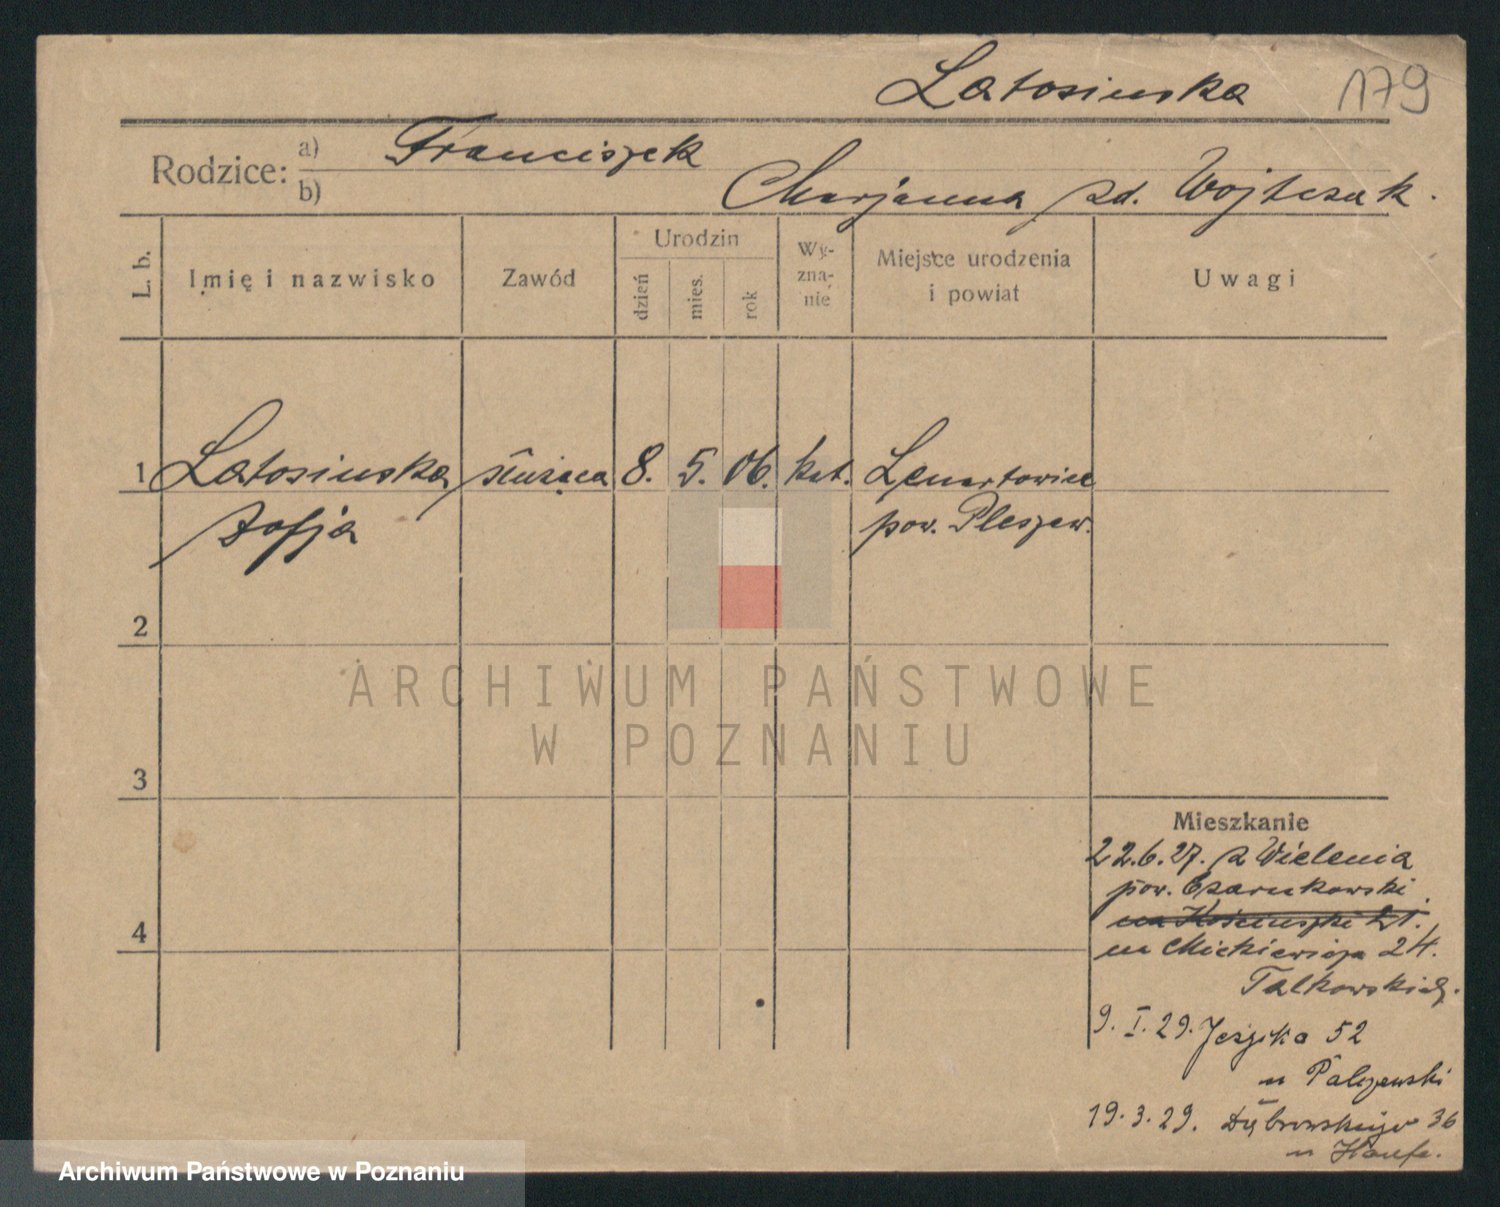 Latosinska 179
Rodzice: a) Franciszek
b) Marjanna zd. Wojtczak.
L. b. Imię i nazwisko Zawód Urodzin dzień mies. rok Wy-zna-nie Miejsce urodzenia i powiat Uwagi
1 Latosinska służąca 8. 5. 06. kat. Lenartowice
Zofja pow. Pleszew.
2
ARCHIWUM PAŃSTWOWE
W POZNANIU
3
Mieszkanie
22.6.27. z Wielenia
pow. Czarnkowski
4
na Mickiewicza 24.
9. I. 29. Jeżycka 52
u Palczewski
19. 3. 29. Dąbrowskiego 36
u
Archiwum Państwowe w Poznaniu